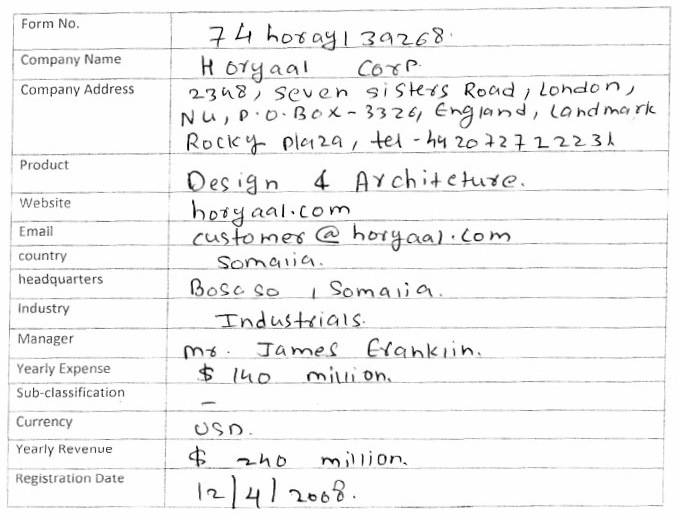 Form No. 74 horay139268.
Company Name Horyaal Corp.
Company Address 2348, seven sisters Road, London,
N4, P.O.BOX-3326, England, Landmark
Rocky plaza, tel - 44 20 72 72 2231
Product Design & Architeture.
Website horyaal.com
Email customer@horyaal.com
country Somalia.
headquarters Bosaso, Somalia.
Industry Industrials.
Manager Mr. James Franklin.
Yearly Expense $ 140 million.
Sub-classification –
Currency USD.
Yearly Revenue $ 240 million.
Registration Date 12/4/2008.